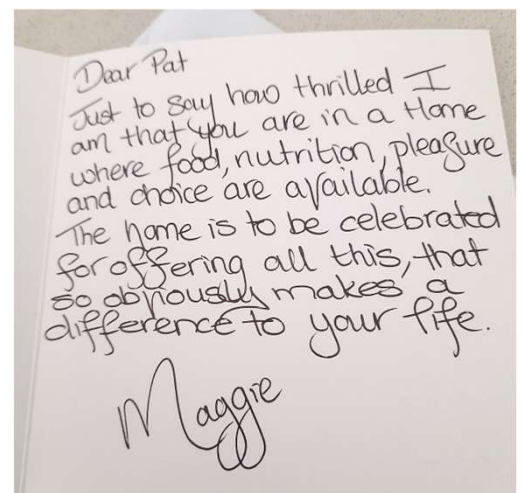 Dear Pat
Just to say how thrilled I
am that you are in a Home
where food, nutrition, pleasure
and choice are available.
The home is to be celebrated
for offering all this, that
so obviously makes a
difference to your life.
Maggie